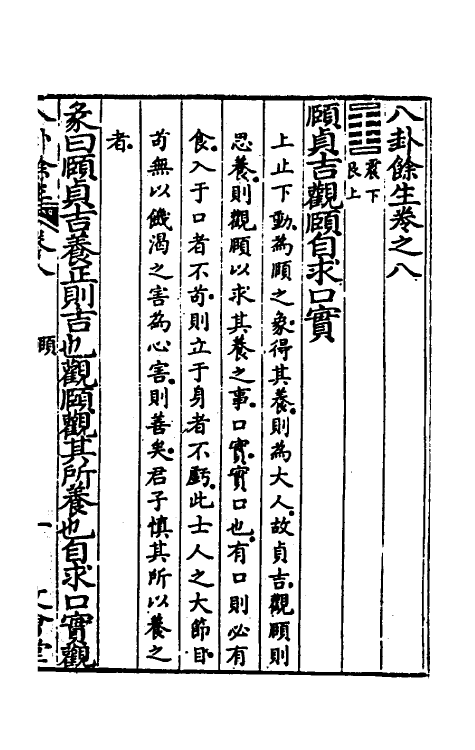 八卦餘生卷之八
䷚震下
艮上
頤貞吉觀頤自求口實
上止下動為頤之象得其養則為大人故貞吉觀頤則
思養則觀頤以求其養之事口實實口也有口則必有
食入于口者不苟則立于身者不虧此士人之大節目
苟無以饑渴之害為心害則善矣君子慎其所以養之
者
彖曰頤貞吉養正則吉也觀頤觀其所養也自求口實觀
頤
一